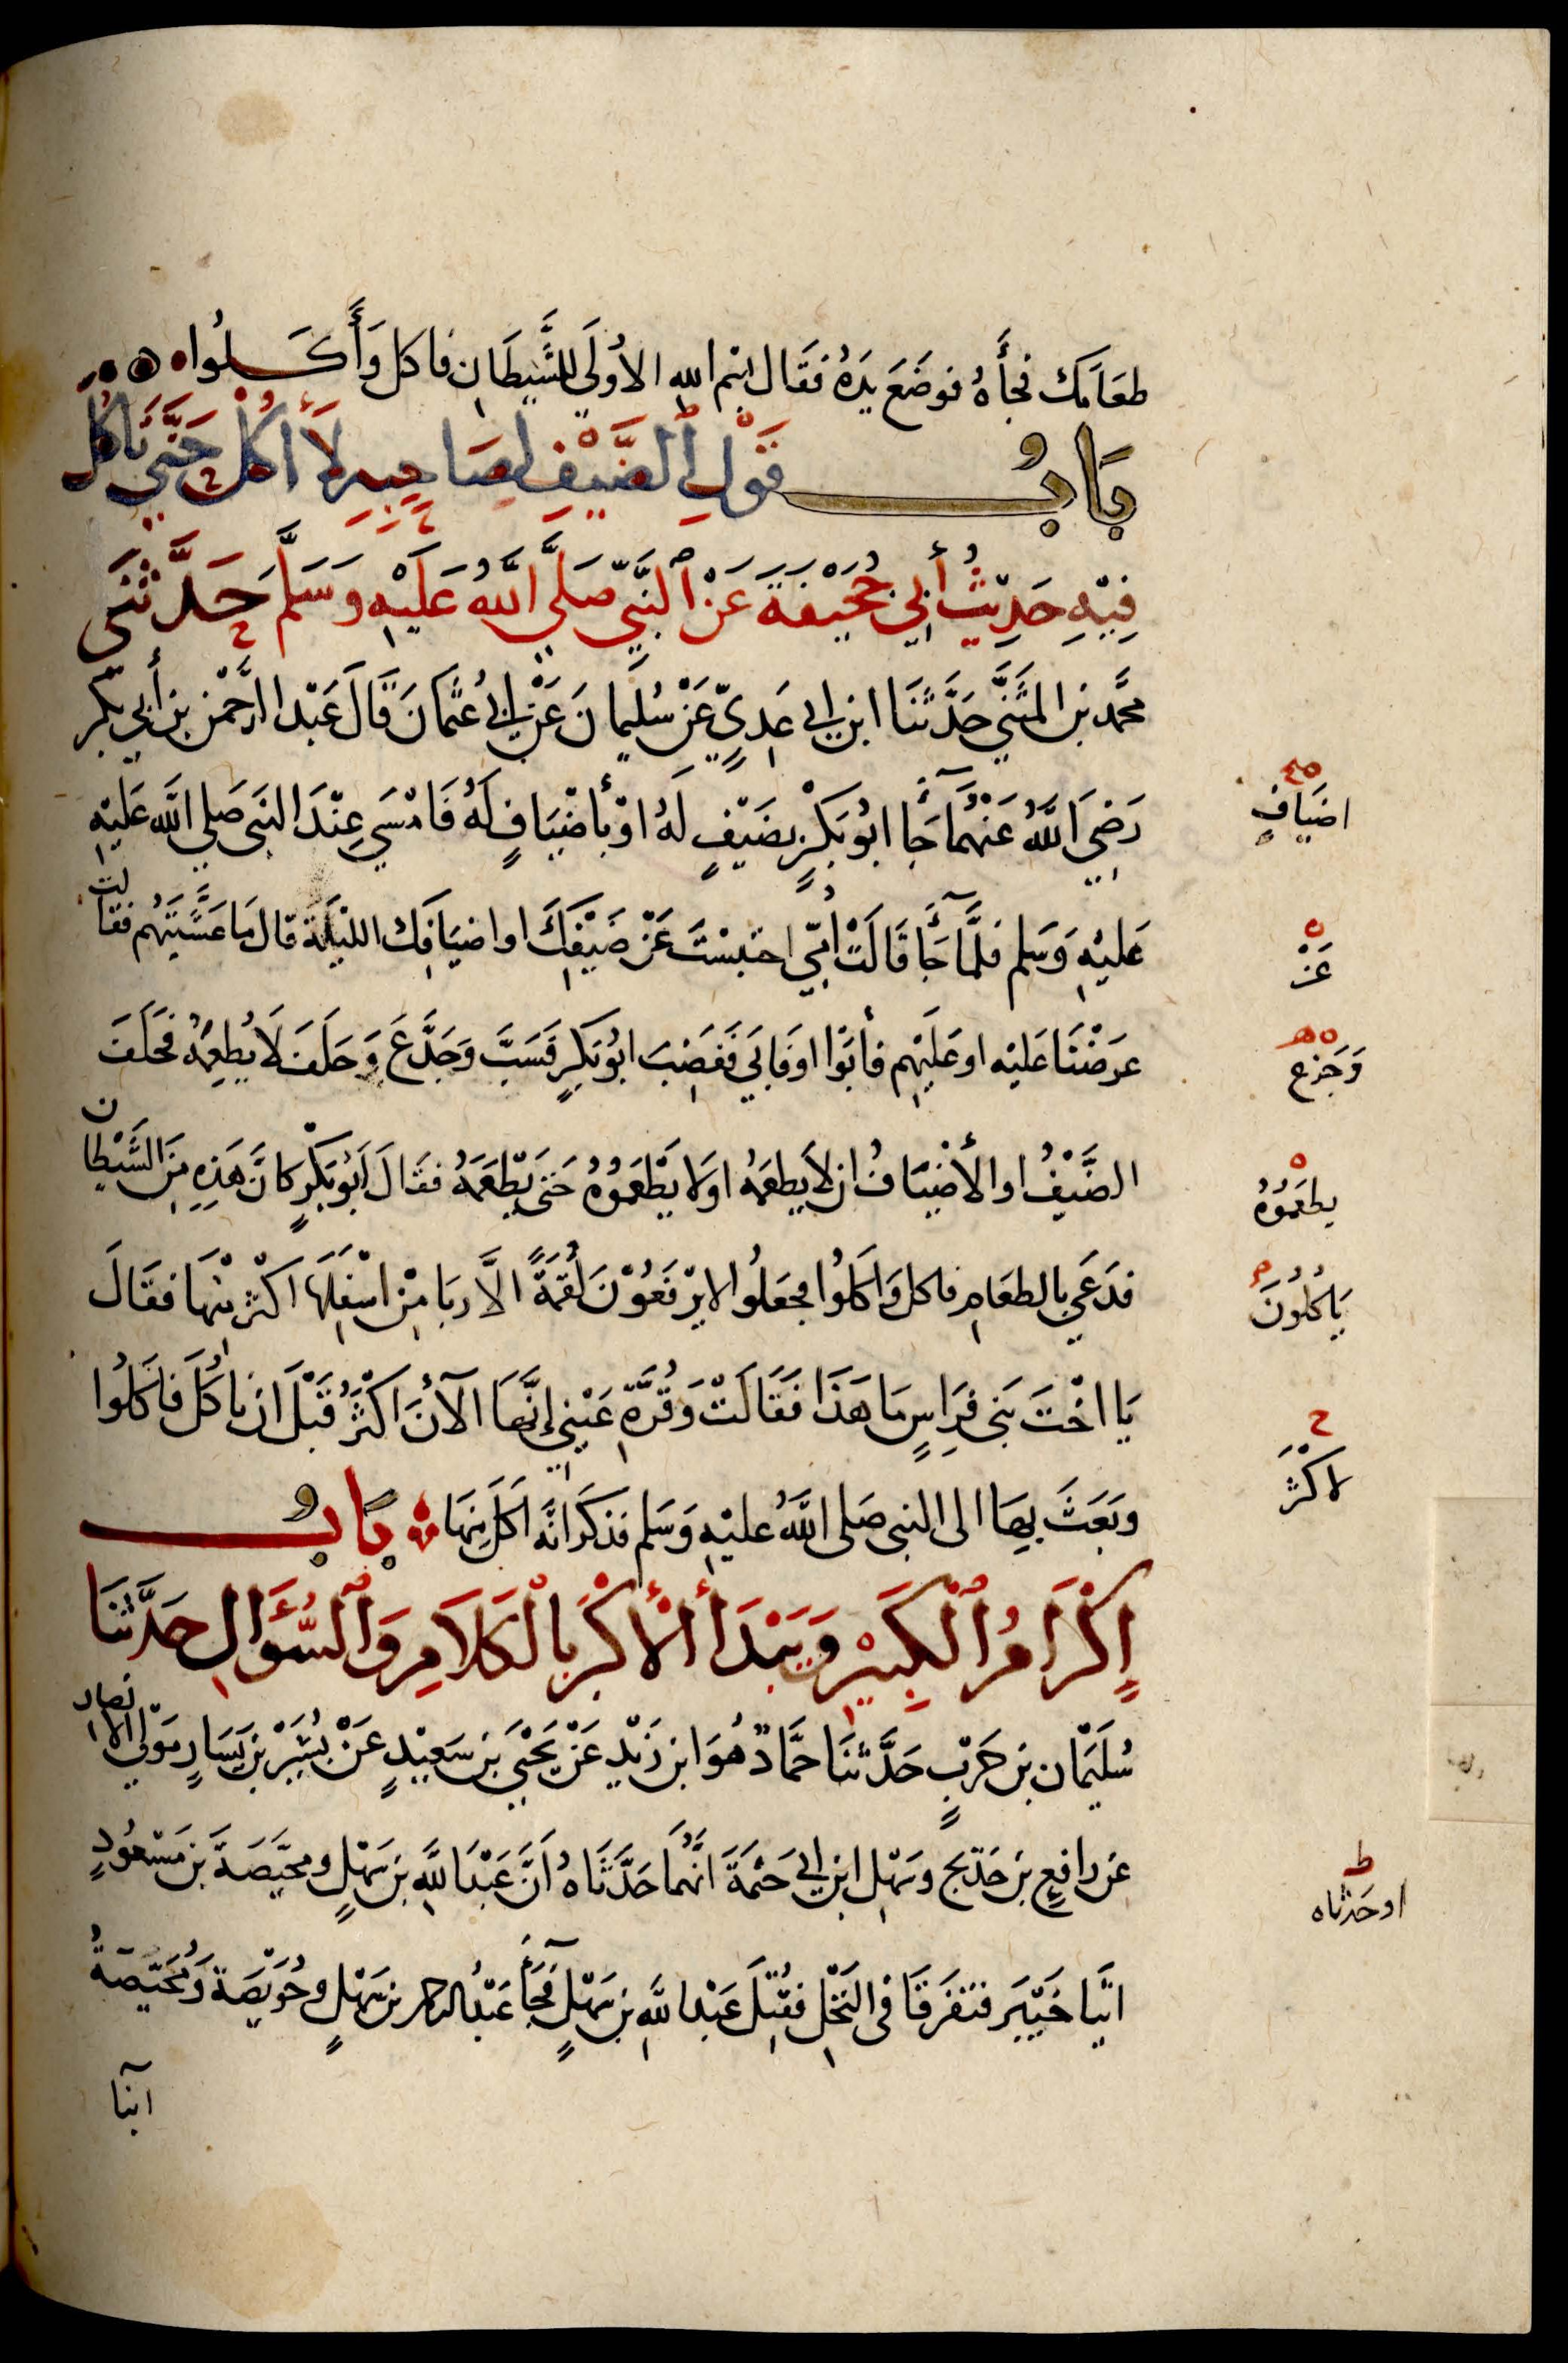 طعَامَك فجأَهُ فوضَعَ يدَهُ فقَال بسْم الله الأُولَي للشَّيطَانِ فاكل وَأَكَلُوا
بَابُ قَوْلِ ٱلضَّيْفِ لِصَاحِبِهِ لَا أٰكُلُ حَتَّي تَأكُلَ
فِيْهِ حَدِيْثُ أَبِي جُحَيْفَةَ عَنْ ٱلنَّبِيِّ صَلَّي اَللَّهُ عَلَيْهِ وَسَلَّمَ حَدَّثَنِي
محمَّد بن المثَنَّي حَدَّثَنَا ابن ابي عَدِيٍّ عَنْ سُلَيمانَ عَنْ ابي عُثمَانَ قَالَ عَبْد الرَّحمْن بن أَبي بكْرٍ
رَضِيَ اَللَّهُ عَنْهُمَا جَآءَ ابُو بَكْرٍ بضَيْفٍ لَهُ اوْ بأَضْيَافٍ لَهُ فَامْسَي عِنْدَ النبَي صَلي اللَّه عَلَيْهِ
عَليْهِ وَسَلم فلمَّا جَآءَ قَالَتْ أُمِّي احْتبسْتَ عَنْ ضَيْفِكَ او اضيَافِك الليْلَةَ قال مَا عَشَّيْتِهُم فقالت
عرَضْنَا عَليْه او عَلَيْهِم فأَبَوْا او فَابَي فَغَضِبَ ابُو بَكرٍ فَسَبَّ وَجَدَّعَ وَحَلَفَ لَا يُطعِمُهُ فحَلَفَ
الضَّيْفُ او الأَضْيَافُ ان لَا يطعَمُه او لَا يَطْعَمُوُهُ حَتَي يَطْعَمَهُ فقَالَ اَبُو بَكْرٍ كانَّ هَذِهِ مِنَ الشَّيْطان
فدَعَي بالطعَامِ فاكل وَاكَلُوا فجعَلُوا لا يرْفَعُوْنَ لُقمَةً الَّا ربَا مِنْ اسْفَلِهَا اكْثر مِنْهَا فقَالَ
يَا اخْتَ بَني فِرَاسٍ مَا هَذَا فَقَالَتْ وَقُرَّةِ عَيْنِي إِنَّهَا الآنَ اَكْثَرُ قَبْلَ ان ناكُلَ فاكَلُوا
وبَعَثَ بِهَا الى النبي صَلى اللَّهُ عليْهِ وَسَلم فذكَرَ انَّه اكَلَ مِنهَا بَابُ
إِكْرَامُ ٱلْكَبِيْرِ وَيَبْدَأُ ٱلأَكْبَرُ بِالْكَلَامِ وَٱلسُّؤَالِ حَدَّثَنَا
سُلَيْمَان بن حَرْبٍ حَدَّثنَا حمَّادٌ هُوَ ابن زَيْدٍ عَنْ يَحْيَي بن سَعِيْدٍ عَنْ بُشَيْرِ بن يَسَارٍ مَوْلَي الانصار
عَن رافِعِ بن خَدِيج وسَهْلِ ابن ابي حَثمَةَ انَّهُمَا حَدَّثَاهُ اَنَّ عَبْدَ اللَّهِ بن سَهْلٍ ومحيِّصَةَ بن مَسْعُودٍ
اتيَا خَيْبَر فتفَرقَا في النخْلِ فقُتِلَ عَبْد اللهِ بن سَهْلٍ فجَآءَ عَبْدُ الرحمن بن سَهْلٍ وحُوَيّصَةُ وَمُحَيّصَةُ
ابنا
اضيَافٍ
عَنْ
وَجَزع
يطعَمُوُهُ
يَاكُلُونَ
لاكثرُ
او حَدثاه